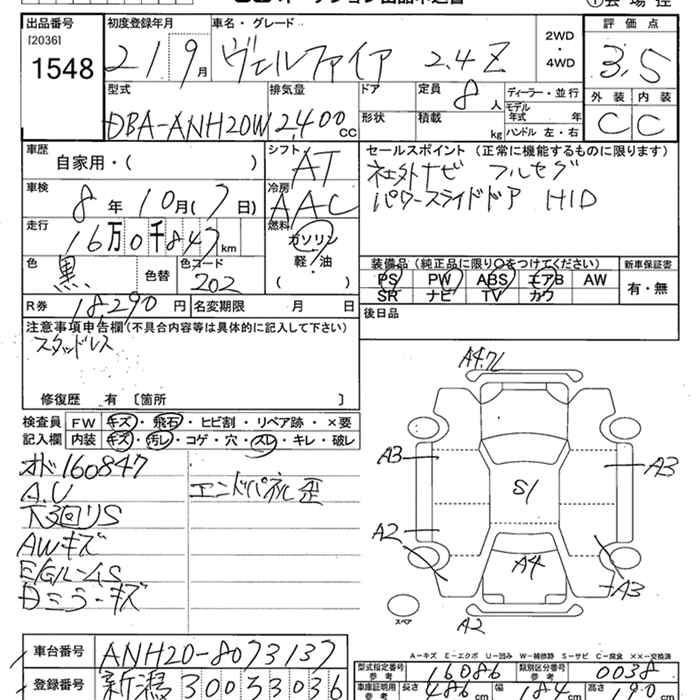 出品番号 初度登録年月 車名・グレード 2WD・4WD 評価点
[2036] 1548 21 9月 ヴェルファイア 2.4Z 3.5
型式 排気量 ドア 定員 8人 ディーラー・並行 外装 内装
DBA-ANH20W 2,400cc 形状 積載 kg モデル年式 年 ハンドル 左・右 C C
車歴 自家用・( ) シフト AT セールスポイント (正常に機能するものに限ります)
社外ナビ フルセグ
車検 8年 10月(7日) 冷房 AAC パワースライドドア HID
走行 16万0千847km 燃料 ガソリン・軽・油 ( )
色 黒 色替 色コード 202 装備品 (純正品に限り○をつけてください) 新車保証書
PS PW ABS エアB AW 有・無
SR ナビ TV カワ
R券 18,290円 名変期限 月 日 後日品
注意事項申告欄(不具合内容等は具体的に記入して下さい)
スタッドレス
修復歴 有 〔箇所 〕
検査員 FW キズ・飛石・ヒビ割・リペア跡・×要
記入欄 内装 キズ・汚レ・コゲ・穴・スレ・キレ・破レ
オド160847
A.U エンドパネル歪
下廻りS
AWキズ
E/GルームS
Dミラーキズ
A4.7L
A3 A3
S1
A2 A4 A3
スペア A2
A-キズ E-エクボ U-凹み W-補修跡 S-サビ C-腐食 XX-交換済
車台番号 ANH20-8073137 型式指定番号 参考 16086 類別区分番号 参考 0038
登録番号 新潟 300 33036 車庫証明用 参考 長さ 486cm 幅 184cm 高さ 90cm